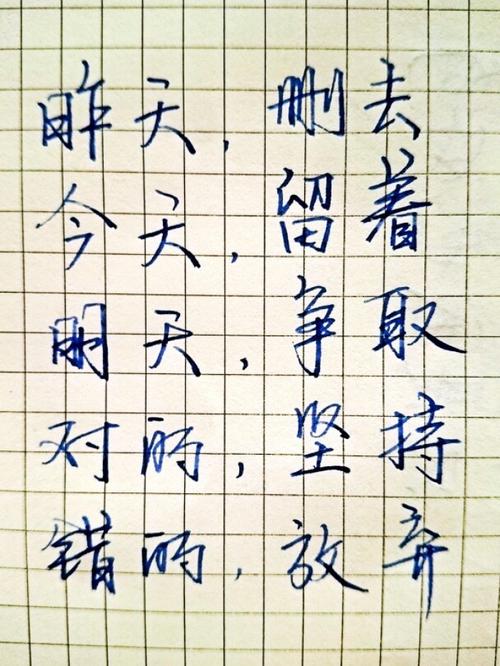 昨天,删去
今天,留着
明天,争取
对的,坚持
错的,放弃